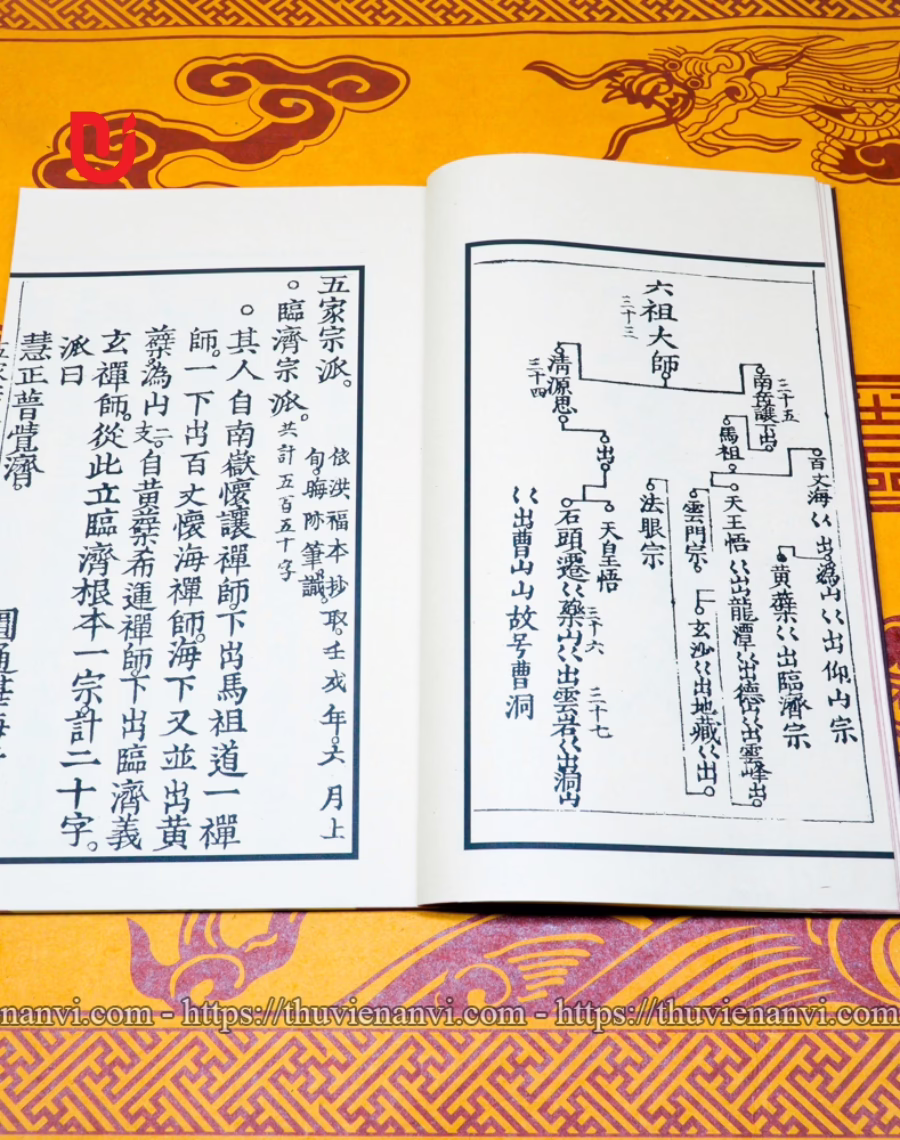 六祖大師
三十三
清源思
三十四
南岳讓下出
三十五
馬祖
百丈海〻出溈山〻出仰山宗
黃蘗〻出臨濟宗
天王悟〻出龍潭〻出德山〻出雲峰出
雲門宗
玄沙〻出地藏〻出
法眼宗
出
天皇悟
石頭遷〻藥山〻出雲岩〻出洞山
三十六
三十七
〻出曹山山故号曹洞
五家宗派。
依洪福本抄取。壬戌年。六月上
旬。晦跡筆識。
。臨濟宗派。共計五百五十字
。其人自南嶽懷讓禪師。下出馬祖道一禪
師。一下出百丈懷海禪師。海下又並出黃
蘗。溈山二支。自黃蘗希運禪師。下出臨濟義
玄禪師。從此立臨濟根本一宗。計二十字。
派曰
慧正普覺濟。
https://thuvienanvi.com